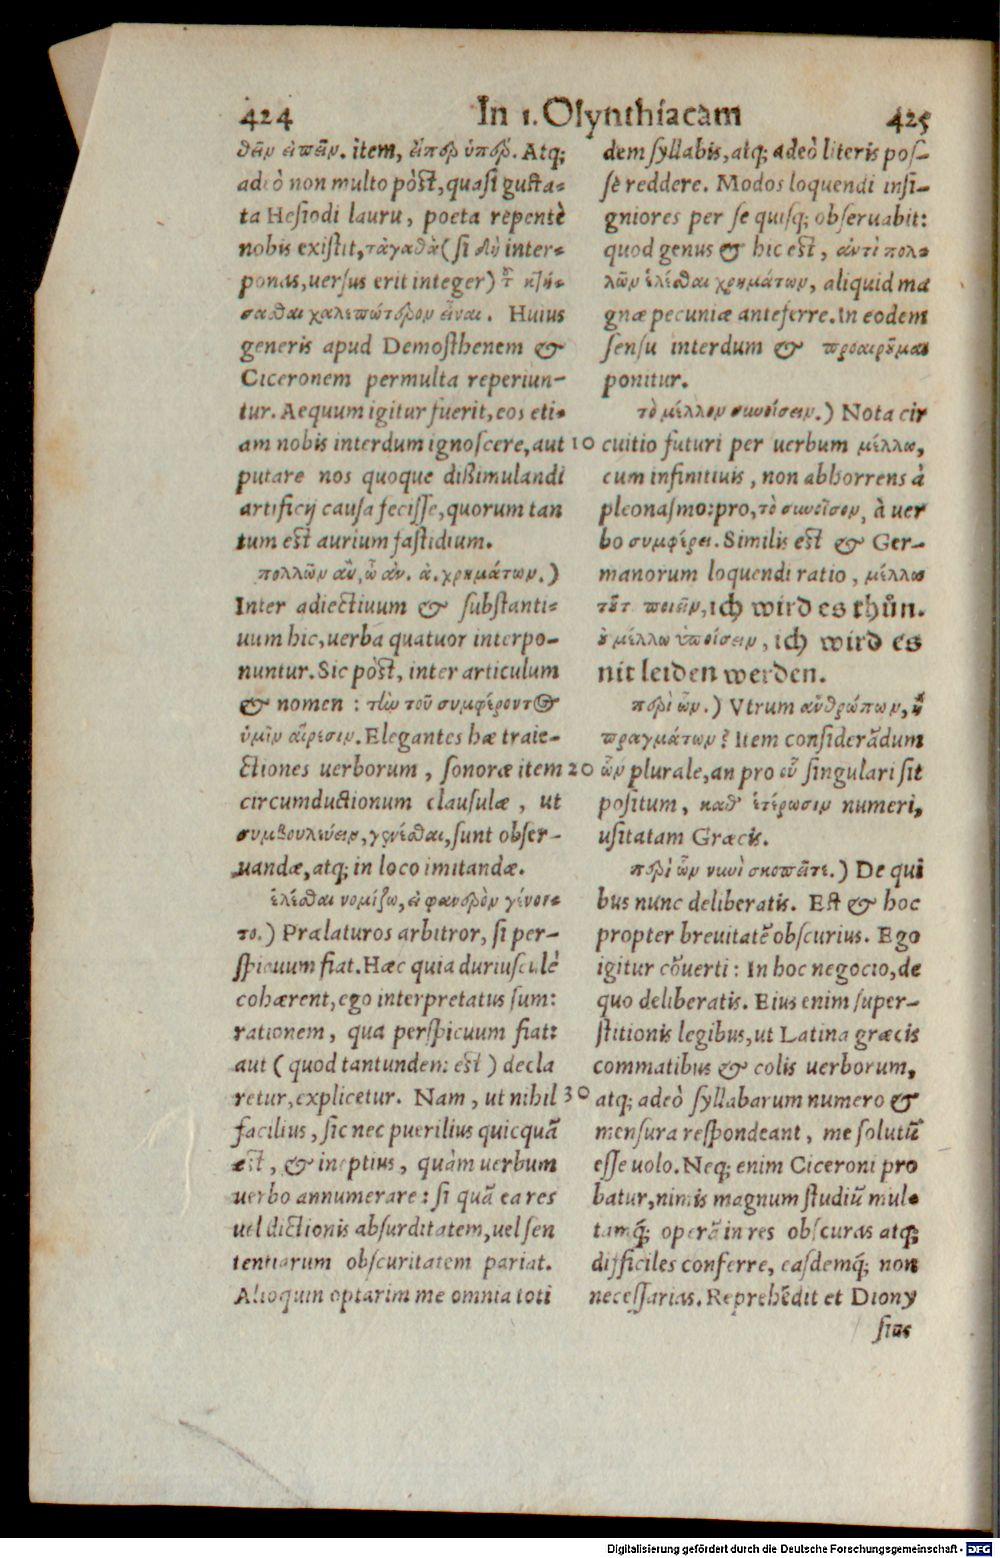 424
In 1. Olynthiacam
425
θεῖν εἰπεῖν. item, εἴπερ ὑπὲρ. Atq;
adeò non multo pòst, quasi gusta-
ta Hesiodi lauru, poeta repentè
nobis existit, τἀγαθὰ (si δὲ inter-
ponas, uersus erit integer) τοῦ κτή-
σαθαι χαλεπώτερον εἶναι. Huius
generis apud Demosthenem &
Ciceronem permulta reperiun-
tur. Aequum igitur fuerit, eos eti-
am nobis interdum ignoscere, aut
putare nos quoque dißimulandi
artificij causa fecisse, quorum tan
tum est aurium fastidium.
πολλῶν ἂν, ὦ ἀν. ἀ. χρημάτων.)
Inter adiectiuum & substanti-
uum hic, uerba quatuor interpo-
nuntur. Sic pòst, inter articulum
& nomen: τὴν τοῦ συμφέροντος
ὑμῖν αἵρεσιν. Elegantes hæ traie-
ctiones uerborum, sonoræ item
circumductionum clausulæ, ut
συμβουλεύειν, γενέσθαι, sunt obser-
uandæ, atq; in loco imitandæ.
ἑλέσθαι νομίζω, εἰ φανερὸν γένοι-
το.) Prælaturos arbitror, si per-
spicuum fiat. Hæc quia duriusculè
cohærent, ego interpretatus sum:
rationem, qua perspicuum fiat:
aut (quod tantunden: est) decla
retur, explicetur. Nam, ut nihil
facilius, sic nec puerilius quicquã
est, & ineptius, quàm uerbum
uerbo annumerare: si quã ea res
uel dictionis absurditatem, uel sen
tentiarum obscuritatem pariat.
Alioquin optarim me omnia toti
10
20
30
dem syllabis, atq; adeò literis pos-
sè reddere. Modos loquendi insi-
gniores per se quisq; obseruabit:
quod genus & hic est, ἀντὶ πολ-
λῶν ἑλέσθαι χρημάτων, aliquid ma
gnæ pecuniæ anteferre. In eodem
sensu interdum & προαιροῦμαι
ponitur.
τὸ μέλλον συνοίσειν.) Nota cir
cuitio futuri per uerbum μέλλω,
cum infinitiuis, non abhorrens à
pleonasmo: pro, τὸ συνοῖσον, à uer
bo συμφέρει. Similis est & Ger-
manorum loquendi ratio, μέλλω
τοῦτο ποιεῖν, ich wird es thůn.
οὐ μέλλω ὑποίσειν, ich wird es
nit leiden werden.
περὶ ὧν.) Vtrum ἀνθρώπων, ἢ
πραγμάτων? Item considerãdum
ὧν plurale, an pro οὗ singulari sit
positum, καθ' ἑτέρωσιν numeri,
usitatam Græcis.
περὶ ὧν νυνὶ σκοπεῖτε.) De qui
bus nunc deliberatis. Est & hoc
propter breuitatẽ obscurius. Ego
igitur cõuerti: In hoc negocio, de
quo deliberatis. Eius enim super-
stitionis legibus, ut Latina græcis
commatibus & colis uerborum,
atq; adeò syllabarum numero &
mensura respondeant, me solutũ
esse uolo. Neq; enim Ciceroni pro
batur, nimis magnum studiũ mul-
tamq́; operã in res obscuras atq;
difficiles conferre, easdemq́; non
necessarias. Reprehẽdit et Diony
sius
Digitalisierung gefördert durch die Deutsche Forschungsgemeinschaft - DFG